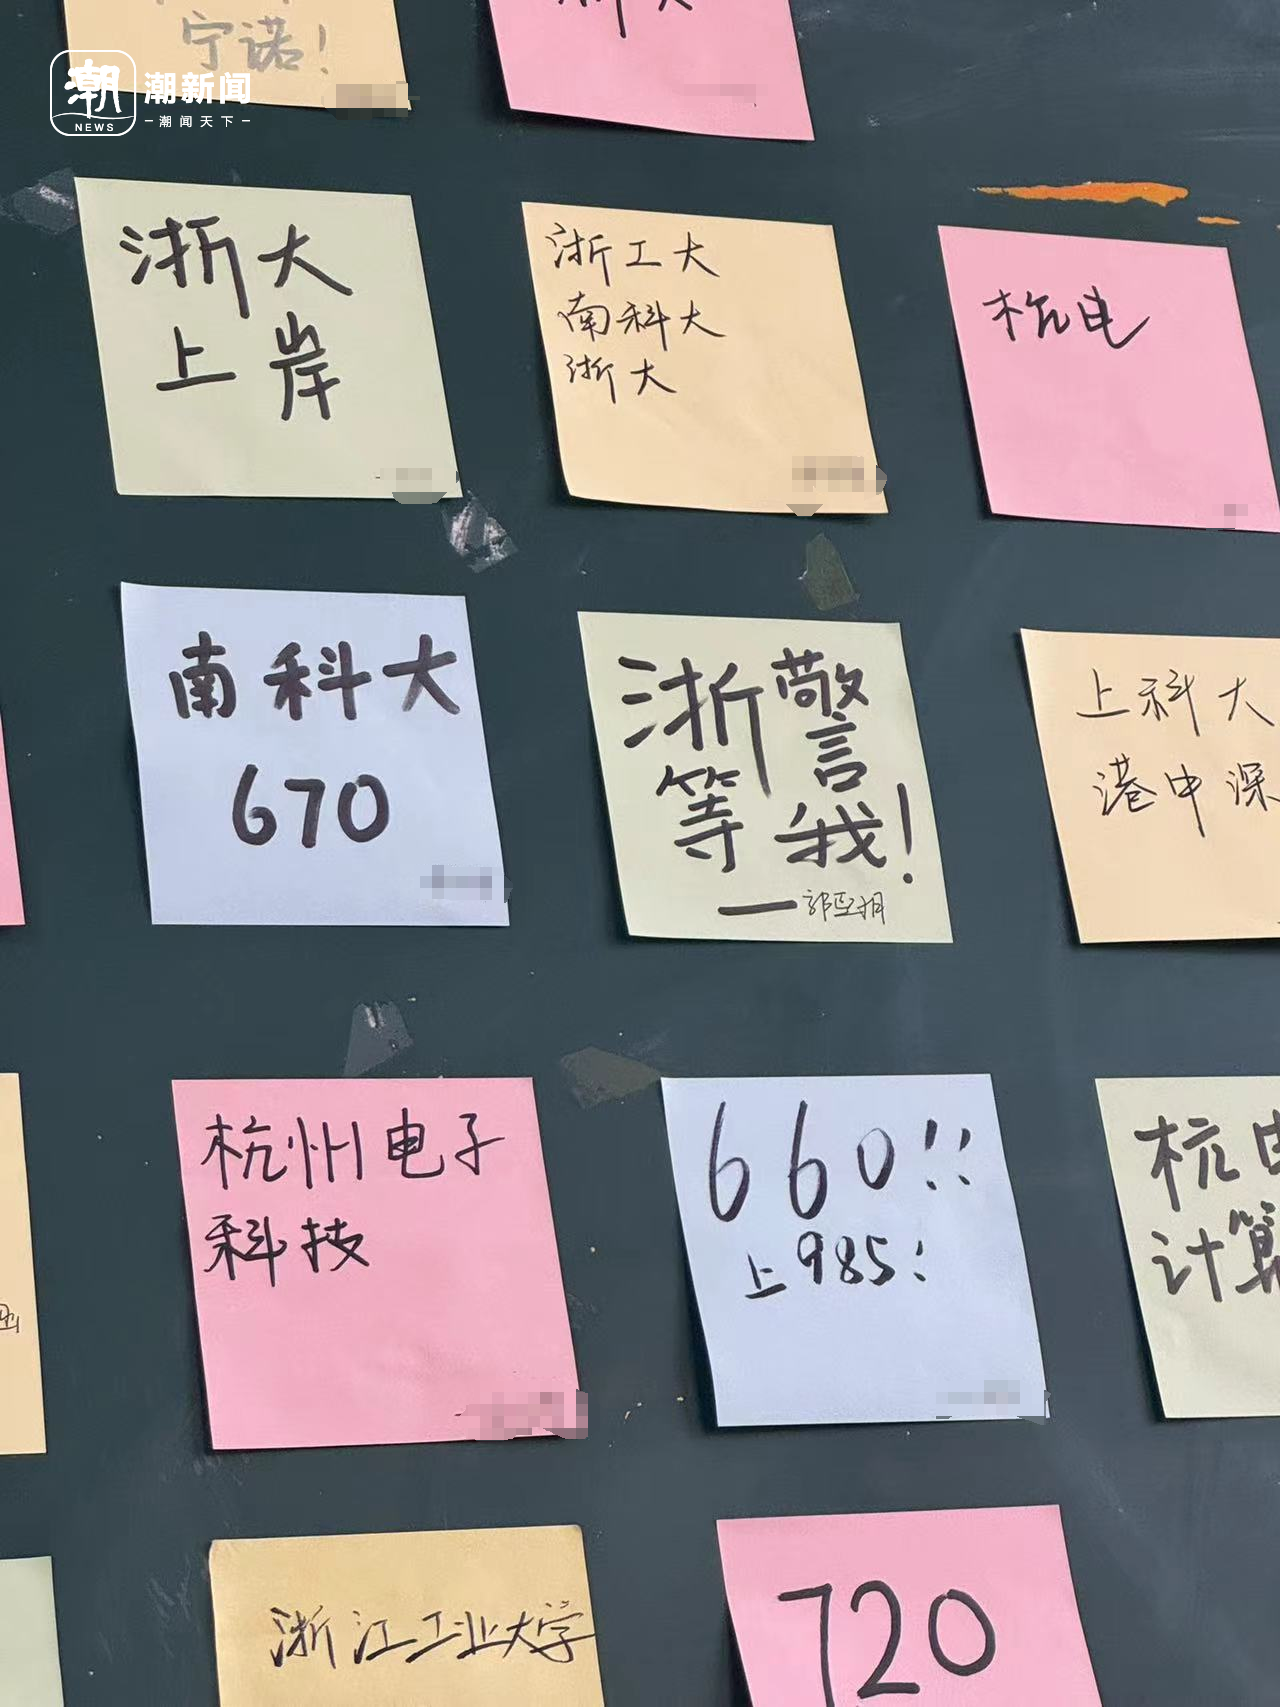 宁诺！
浙大
潮
NEWS
潮新闻
潮闻天下
浙大
上岸
浙工大
南科大
浙大
杭电
南科大
670
浙警
等我！
上科大
港中深
杭州电子
科技
660!!
上985!
杭电
计算
浙江工业大学
720